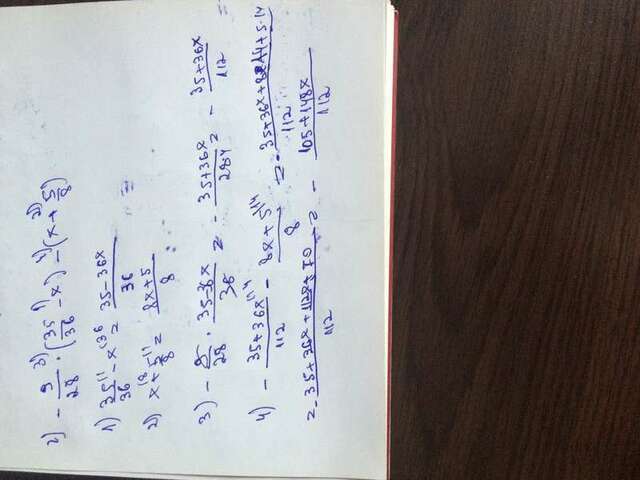 2) - 9/28 · 3) (35/36 1) - x) 4) - (x + 2) 5/8)
1) 35/36 - x = (35-36x)/36 =
2) x + 5/8 = (8x+5)/8
3) - 9/28 · (35-36x)/36 = - (35+36x)/(28·4) = - (35+36x)/112 =
4) - (35+36x)/112 - (8x+5)/8 = - (35+36x+8x·14+5·14)/112
= - (35+36x+112x+70)/112 = - (105+148x)/112